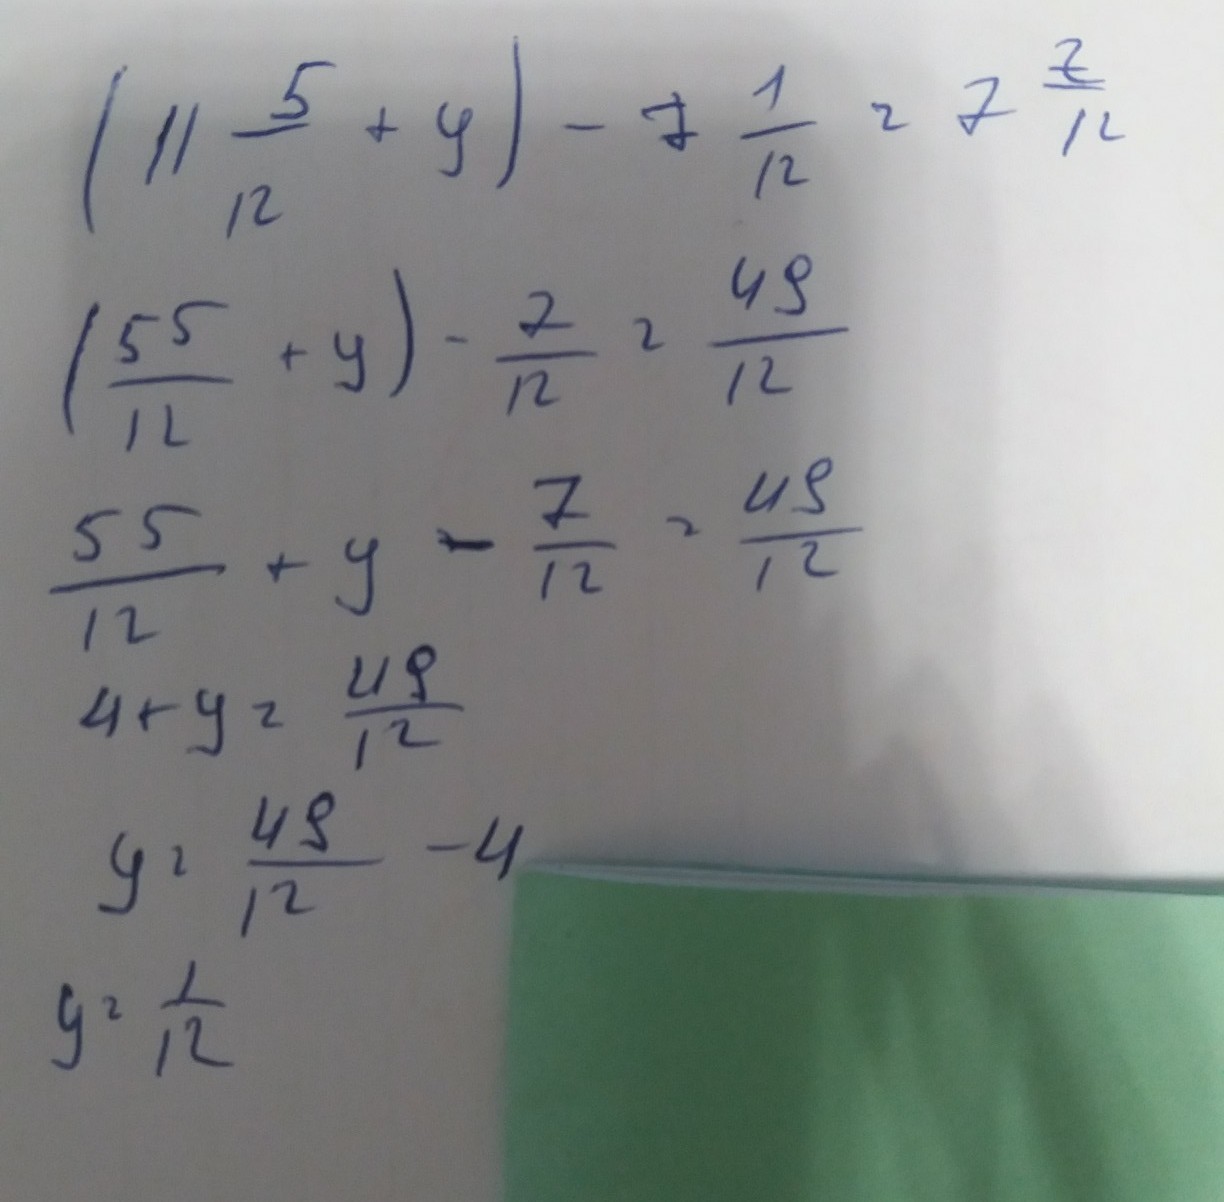 (11 5/12 + y) - 7 1/12 = 7 7/12
(55/12 + y) - 7/12 = 49/12
55/12 + y - 7/12 = 49/12
4 + y = 49/12
y = 49/12 - 4
y = 1/12